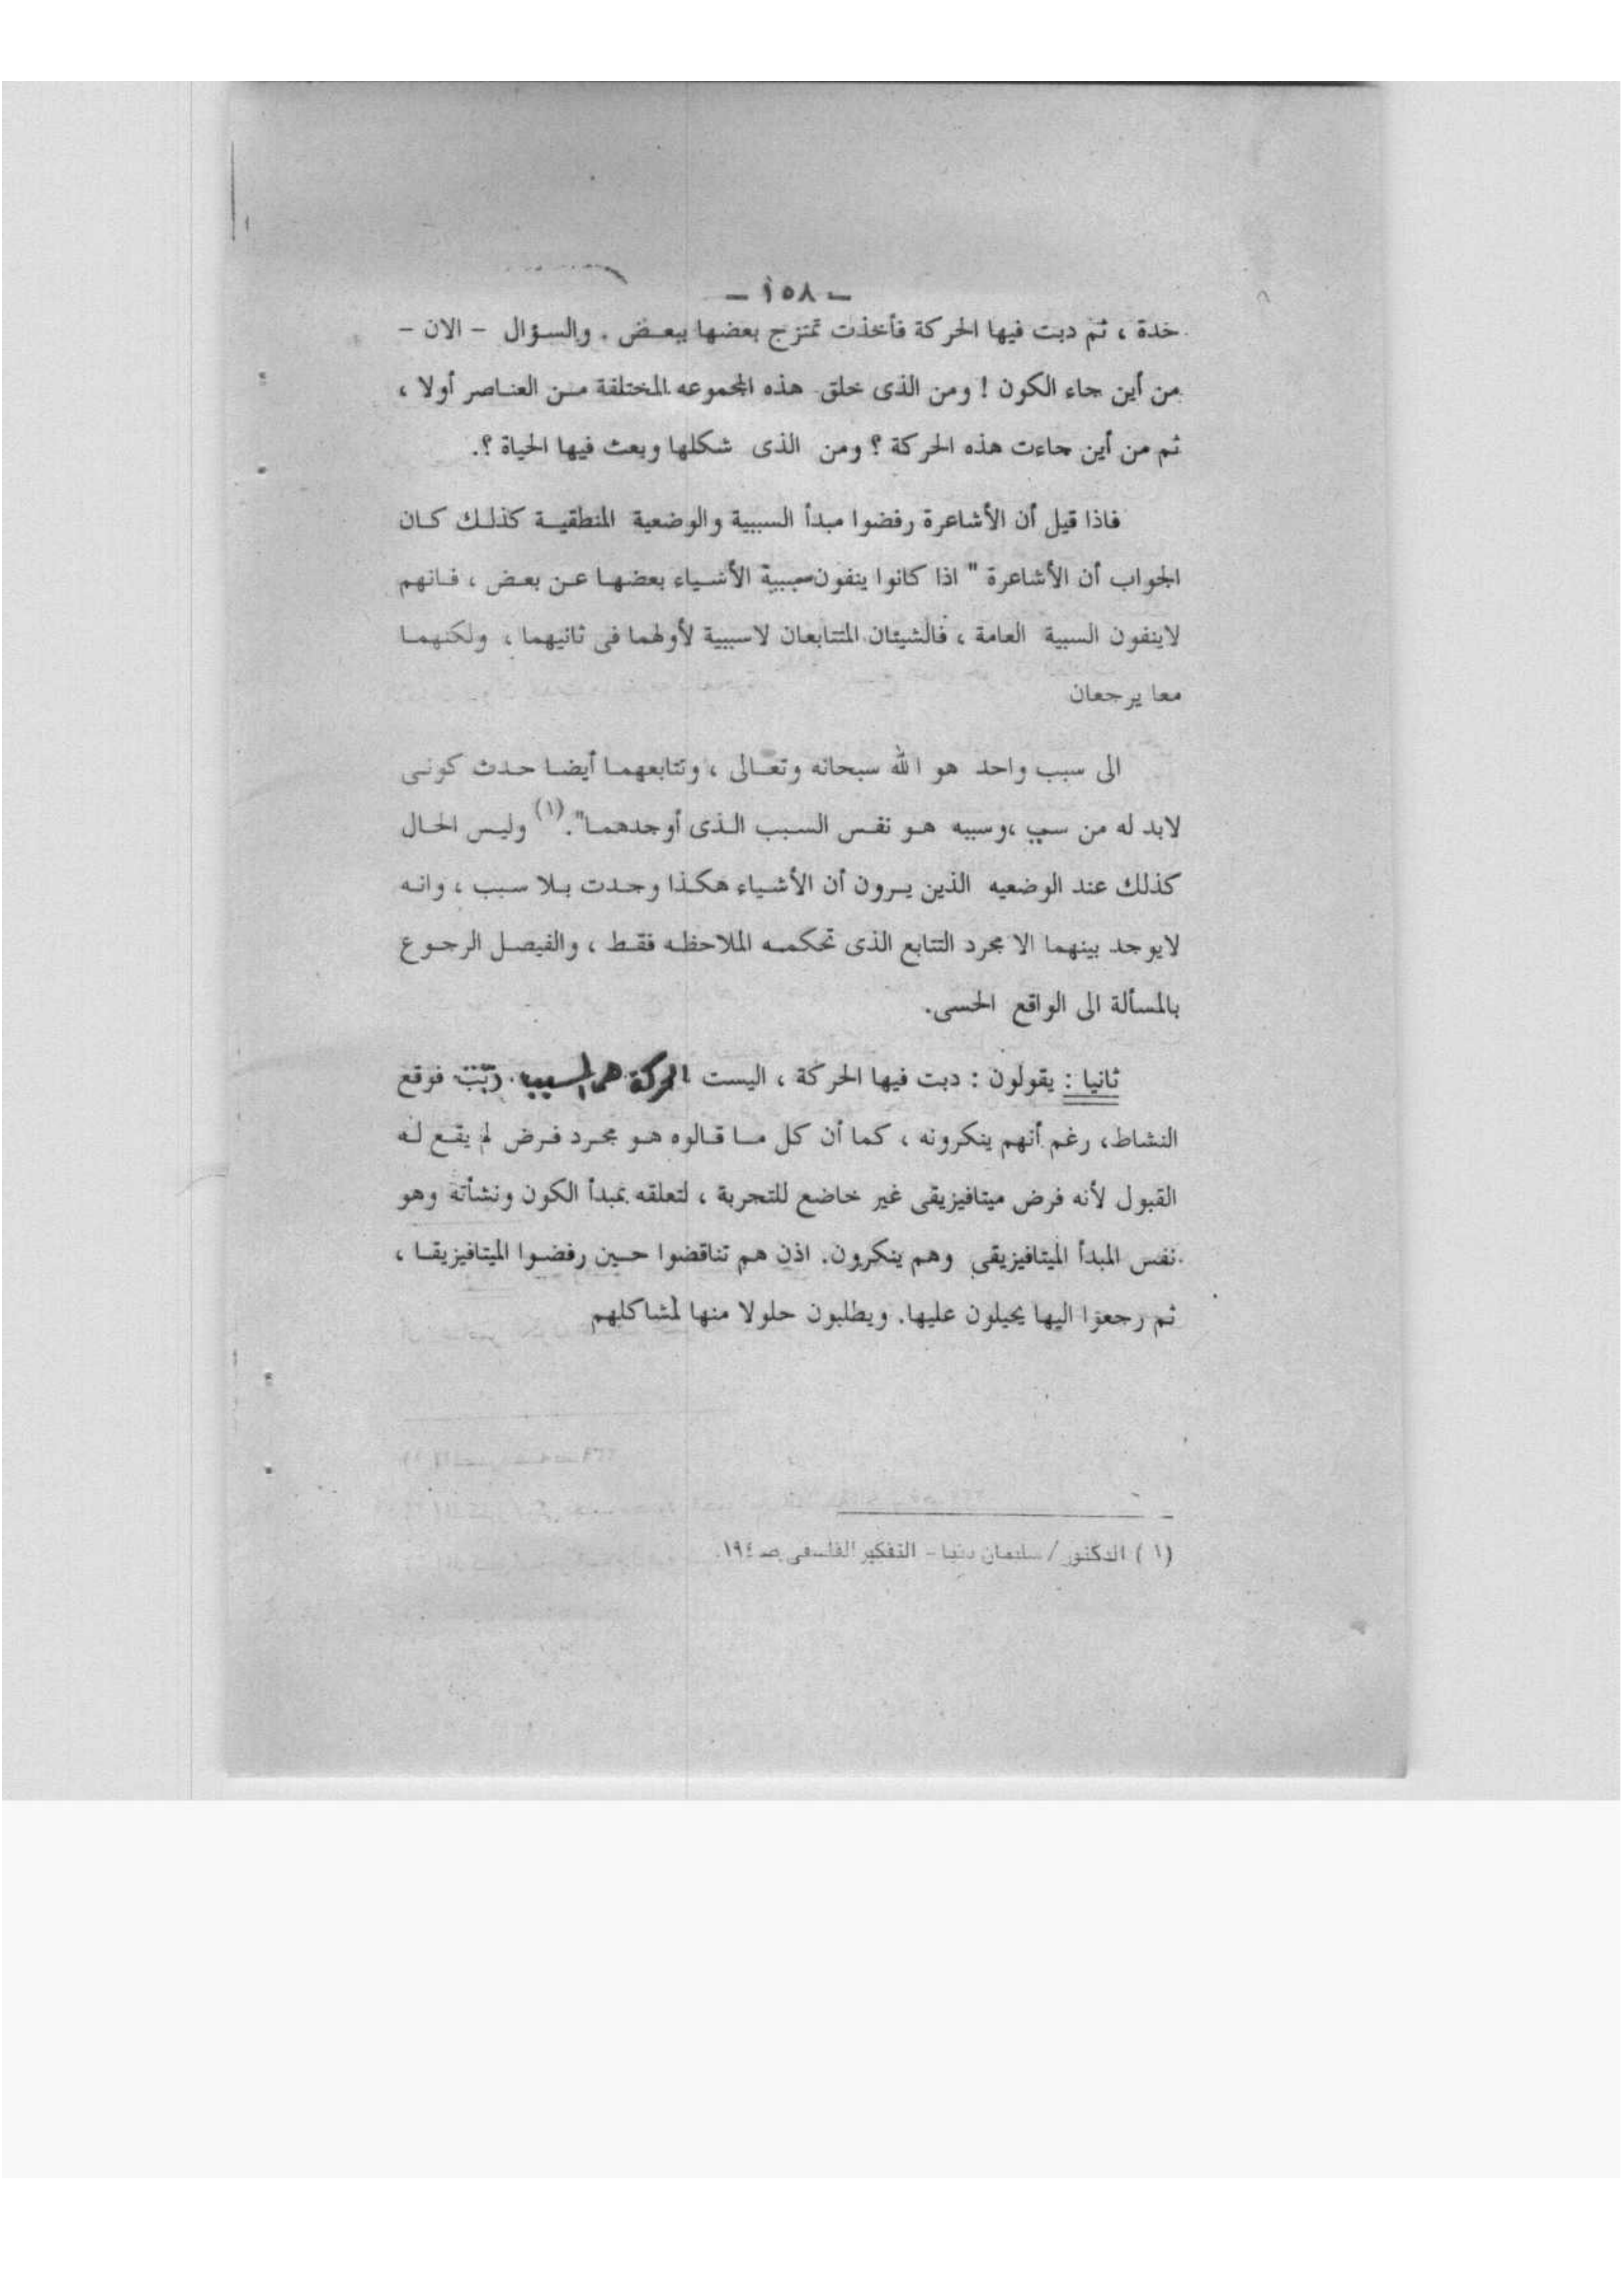 - ١٥٨ -
خدة ، ثم دبت فيها الحركة فأخذت تمتزج بعضها ببعض . والسؤال - الان -
من أين جاء الكون ! ومن الذى خلق هذه المجموعه المختلفة من العناصر أولا ،
ثم من أين جاءت هذه الحركة ؟ ومن الذى شكلها وبعث فيها الحياة ؟.
فاذا قيل أن الأشاعرة رفضوا مبدأ السببية والوضعية المنطقية كذلك كان
الجواب أن الأشاعرة " اذا كانوا ينفون سببية الأشياء بعضها عن بعض ، فانهم
لاينفون السببة العامة ، فالشيئان المتتابعان لاسببية لأولهما فى ثانيهما ، ولكنهما
معا يرجعان
الى سبب واحد هو الله سبحانه وتعالى ، وتتابعهما أيضا حدث كونى
لابد له من سبب ،وسببه هو نفس السبب الذى أوجدهما".(١) وليس الحال
كذلك عند الوضعيه الذين يرون أن الأشياء هكذا وجدت بلا سبب ، وانه
لايوجد بينهما الا مجرد التتابع الذى تحكمه الملاحظه فقط ، والفيصل الرجوع
بالمسألة الى الواقع الحسى.
ثانيا : يقولون : دبت فيها الحركة ، اليست الحركة هى السبب فوقع
النشاط، رغم أنهم ينكرونه ، كما أن كل ما قالوه هو مجرد فرض لم يقع له
القبول لأنه فرض ميتافيزيقى غير خاضع للتجربة ، لتعلقه بمبدأ الكون ونشأته وهو
نفس المبدأ الميتافيزيقى وهم ينكرون. اذن هم تناقضوا حين رفضوا الميتافيزيقا ،
ثم رجعوا اليها يحيلون عليها. ويطلبون حلولا منها لمشاكلهم
(١) الدكتور / سليمان دنيا - التفكير الفلسفى صـ ١٩٤.